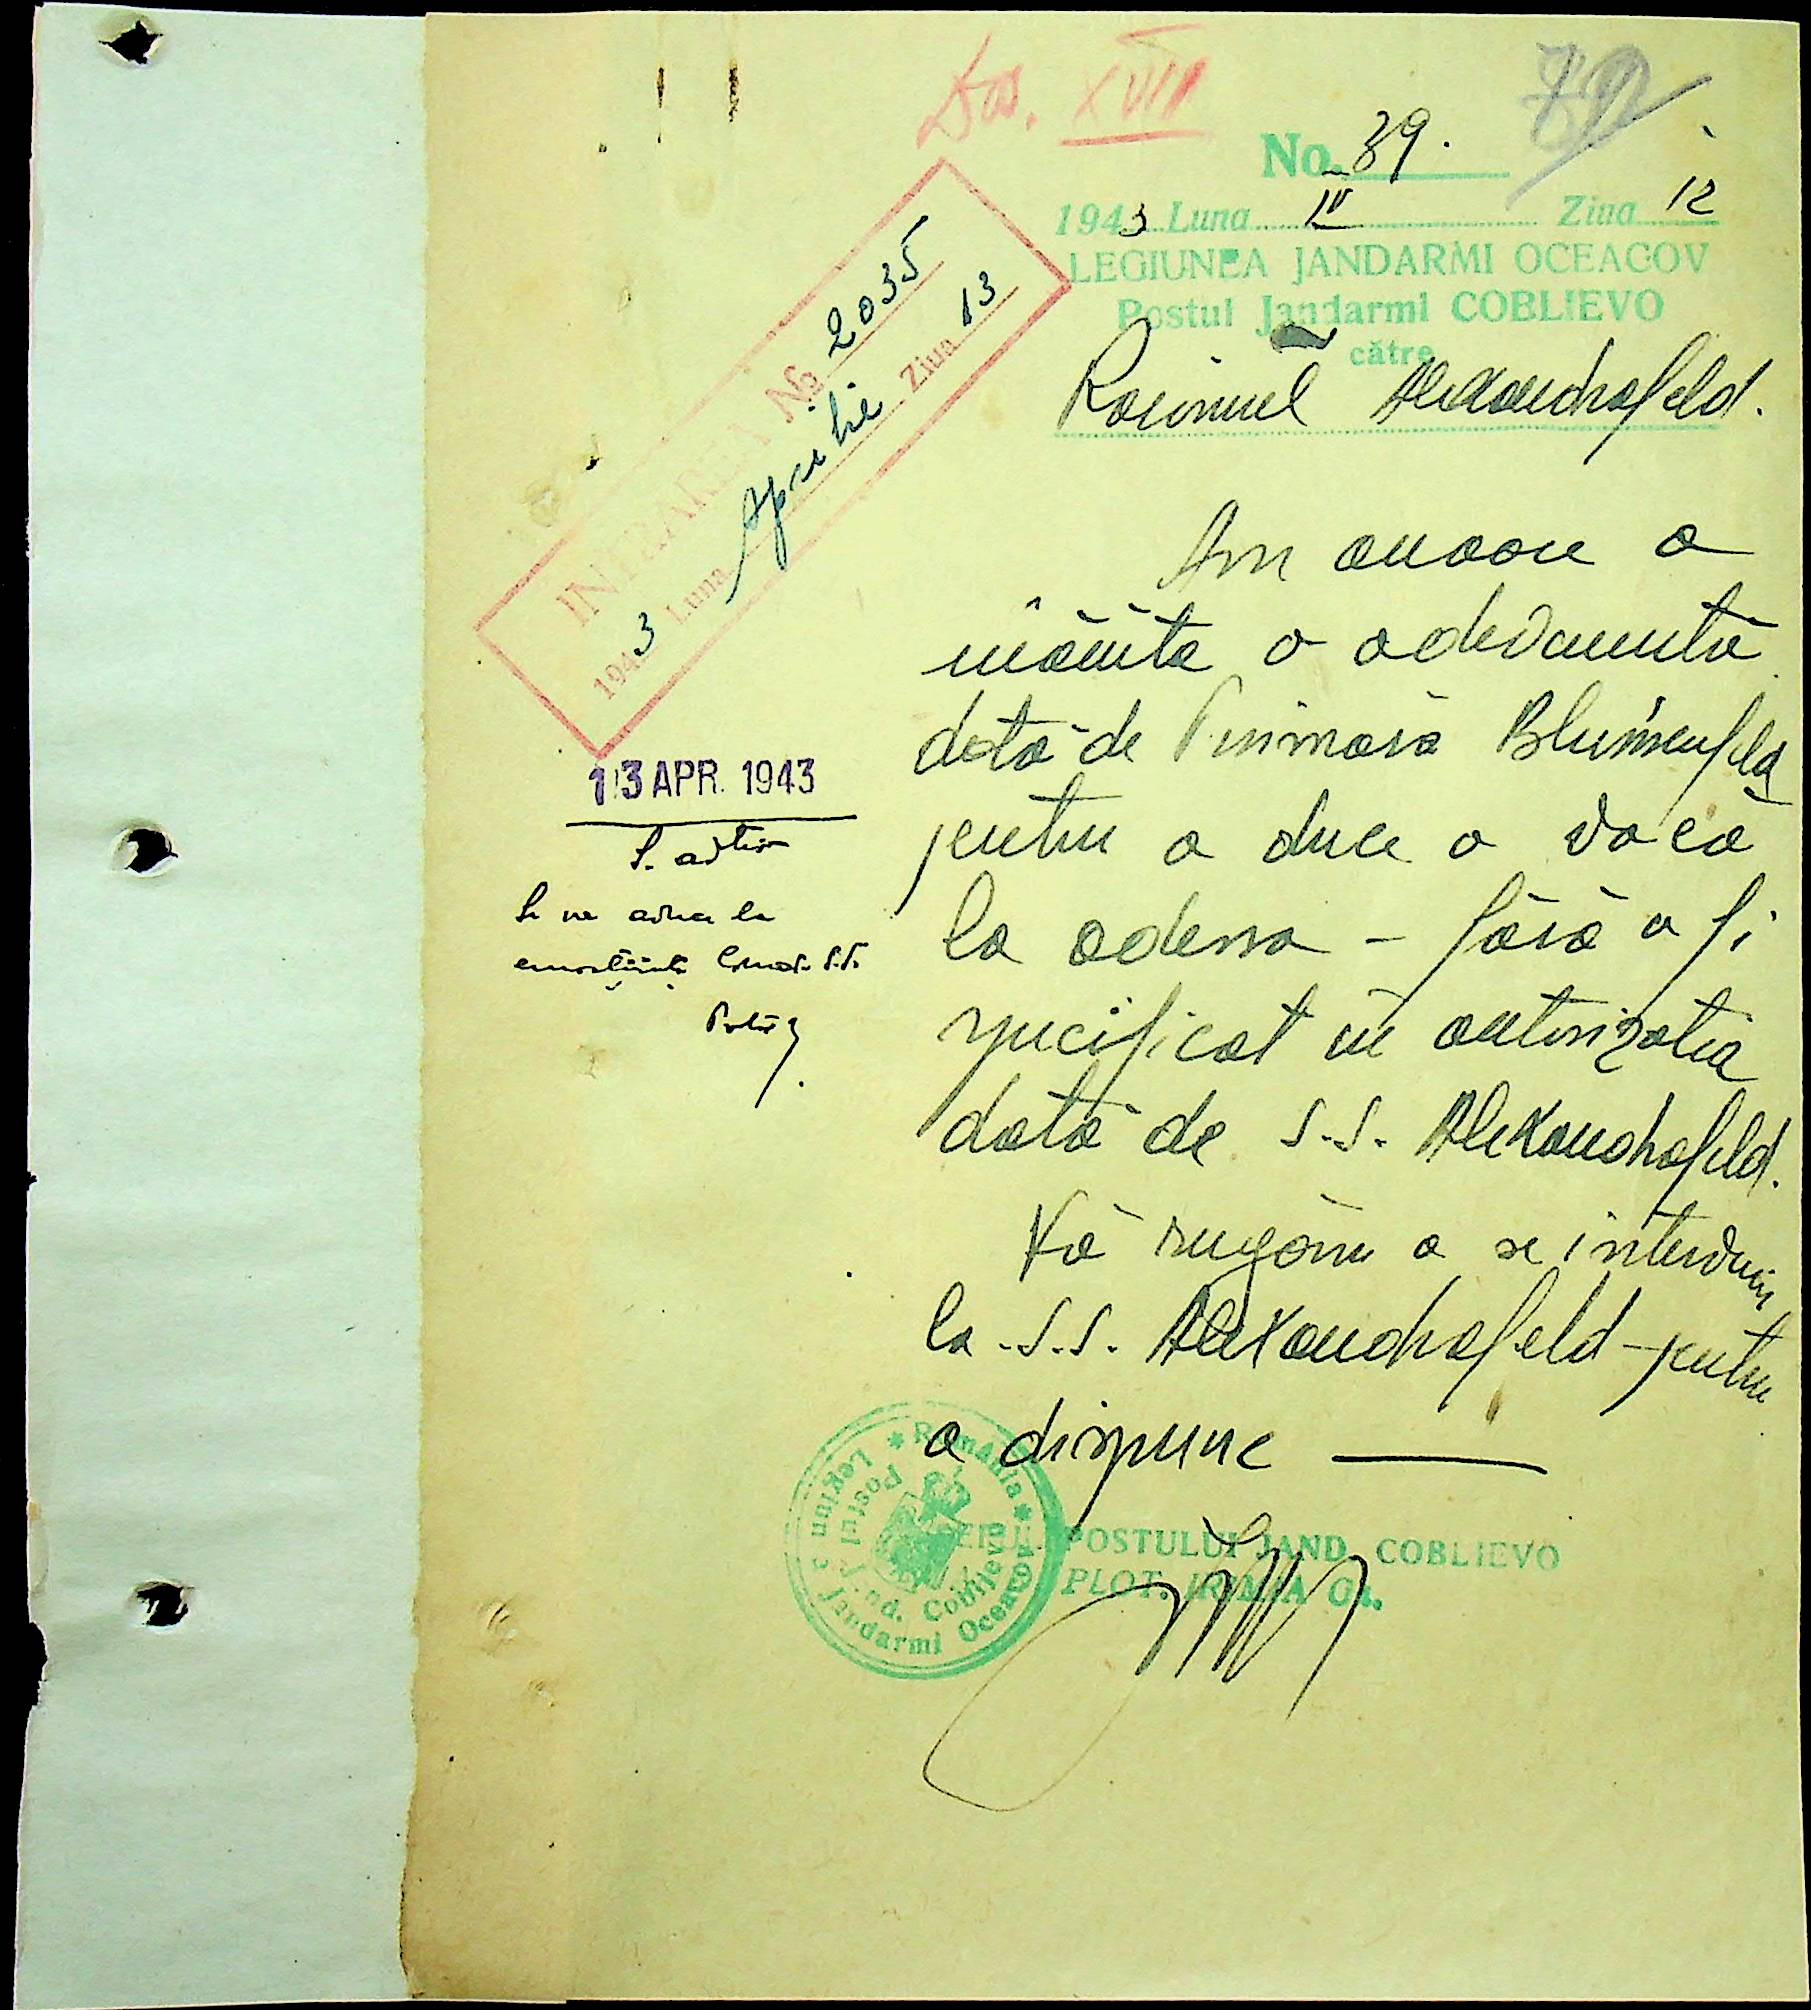 Dos. XVIII
72
No. 39.
1943 Luna IV Ziua 12
LEGIUNEA JANDARMI OCEACOV
Postul Jandarmi COBLIEVO
către
Raionul Alexandrofeld.
INTRAREA No 2035
1943 Luna Aprilie Ziua 13
13 APR. 1943
Se va aduce la
cunoștință
Am onoare a
înainta o adeverință
dată de Primăria Blumenfeld
pentru a duce o vacă
la Odessa – fără a fi
specificat în autorizația
dată de S.S. Alexandrofeld.
Vă rugăm a se interveni
la S.S. Alexandrofeld – pentru
a dispune
ȘEFUL POSTULUI JAND. COBLIEVO
PLOT. IRIMIA GH.
* România * Legiunea Jandarmi Oceacov
Postul Jand. Coblievo